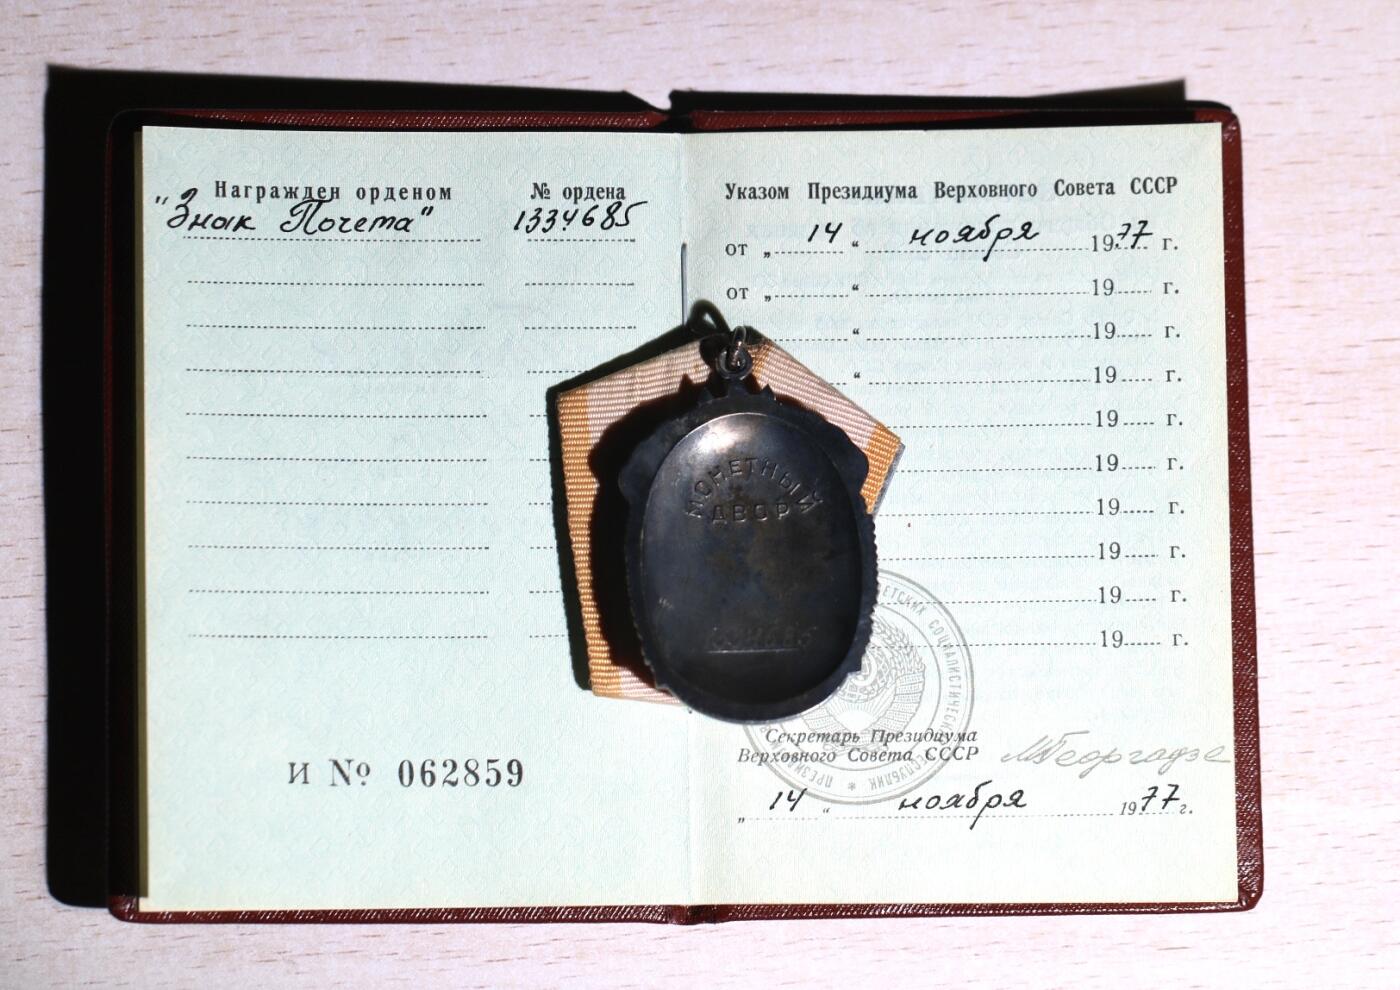 Награжден орденом
"Знак Почета"
№ ордена
1334685
И № 062859
Указом Президиума Верховного Совета СССР
от „ 14 “ ноября 1977 г.
от „ “ 19 г.
“ 19 г.
“ 19 г.
19 г.
19 г.
19 г.
19 г.
19 г.
19 г.
МОНЕТНЫЙ
ДВОР
Секретарь Президиума
Верховного Совета СССР
МГеоргадзе
„ 14 “ ноября 1977 г.